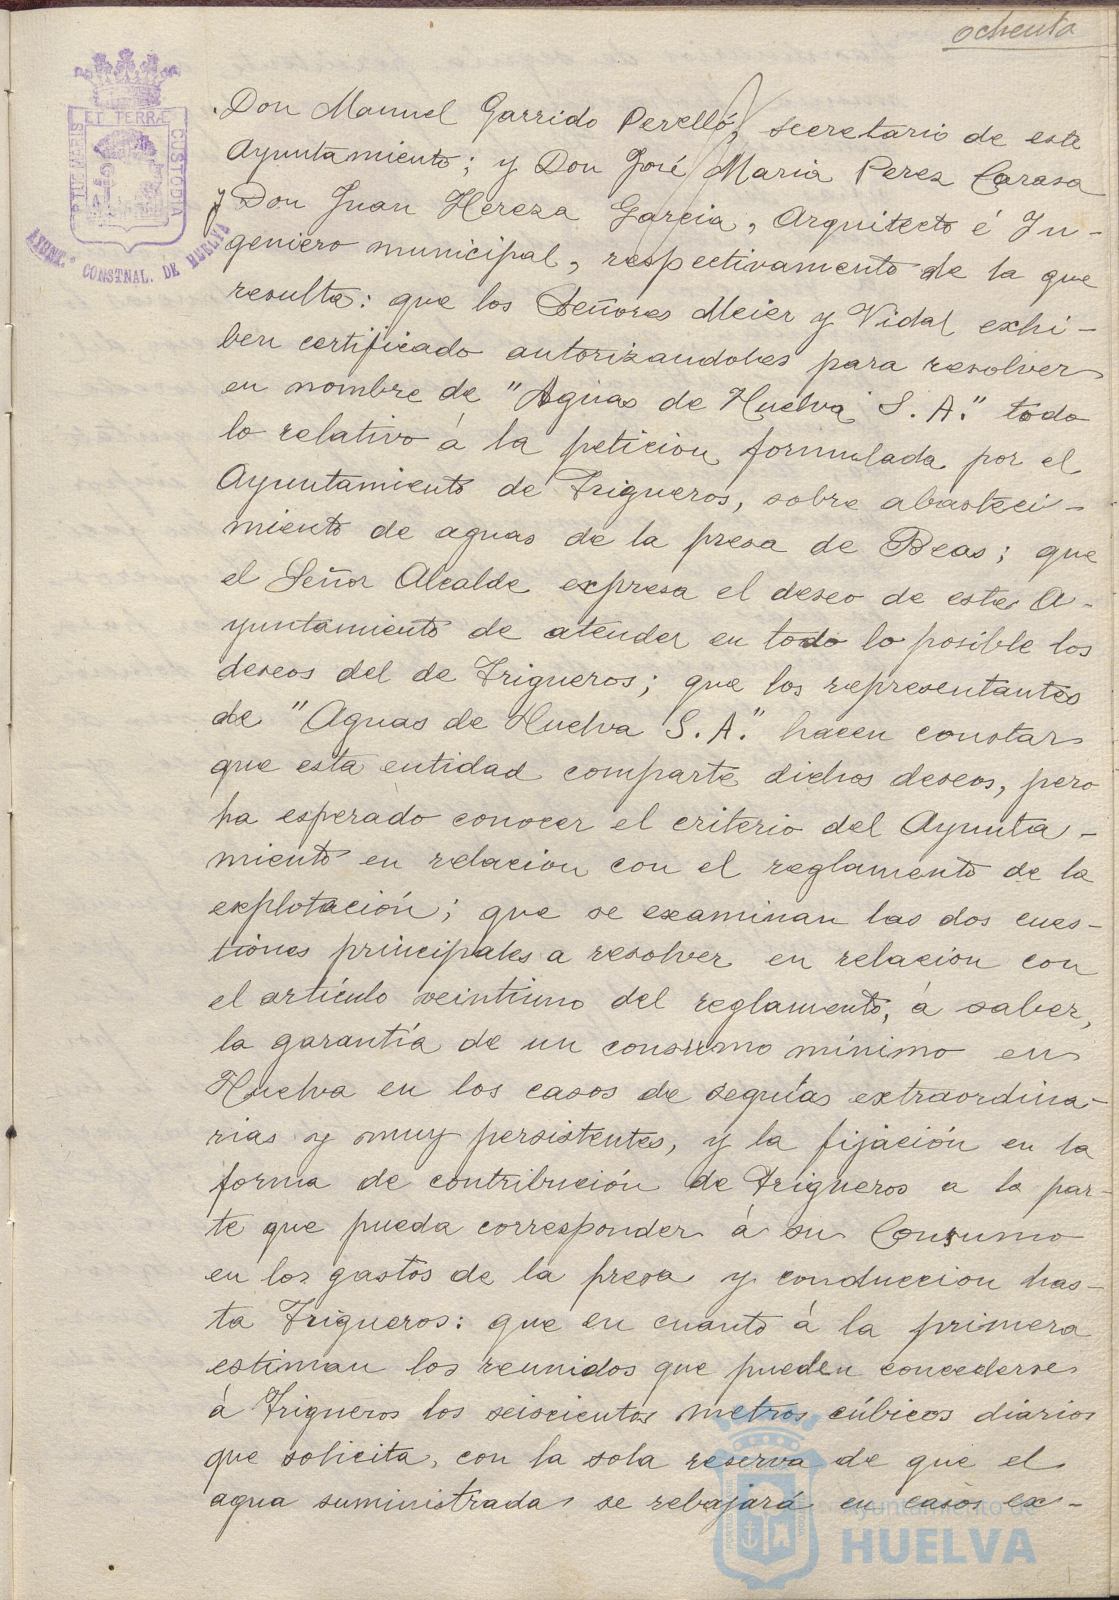 ochenta
PORTUS MARIS
ET TERRÆ
CUSTODIA
AYUNT.º CONSTNAL. DE HUELVA
Don Manuel Garrido Perelló, secretario de este
Ayuntamiento; y Don José Maria Perez Carasa
y Don Juan Hereza Garcia, Arquitecto é In-
geniero municipal, respectivamente de la que
resulta: que los Señores Meier y Vidal exhi-
ben certificado autorizandoles para resolver
en nombre de "Aguas de Huelva S. A." todo
lo relativo á la peticion formulada por el
Ayuntamiento de Trigueros, sobre abasteci-
miento de aguas de la presa de Beas; que
el Señor Alcalde expresa el deseo de este A-
yuntamiento de atender en todo lo posible los
deseos del de Trigueros; que los representantes
de "Aguas de Huelva S. A." hacen constar
que esta entidad comparte dichos deseos, pero
ha esperado conocer el criterio del Ayunta-
miento en relacion con el reglamento de la
explotación; que se examinan las dos cues-
tiones principales a resolver en relacion con
el artículo veintiuno del reglamento, á saber,
la garantía de un consumo mínimo en
Huelva en los casos de sequías extraordina-
rias y muy persistentes, y la fijación en la
forma de contribución de Trigueros a la par-
te que pueda corresponder á su Consumo
en los gastos de la presa y conduccion has-
ta Trigueros: que en cuanto á la primera
estiman los reunidos que pueden concederse
á Trigueros los seiscientos metros cúbicos diarios
que solicita, con la sola reserva de que el
agua suministrada se rebajará en casos ex-
Ayuntamiento de
HUELVA